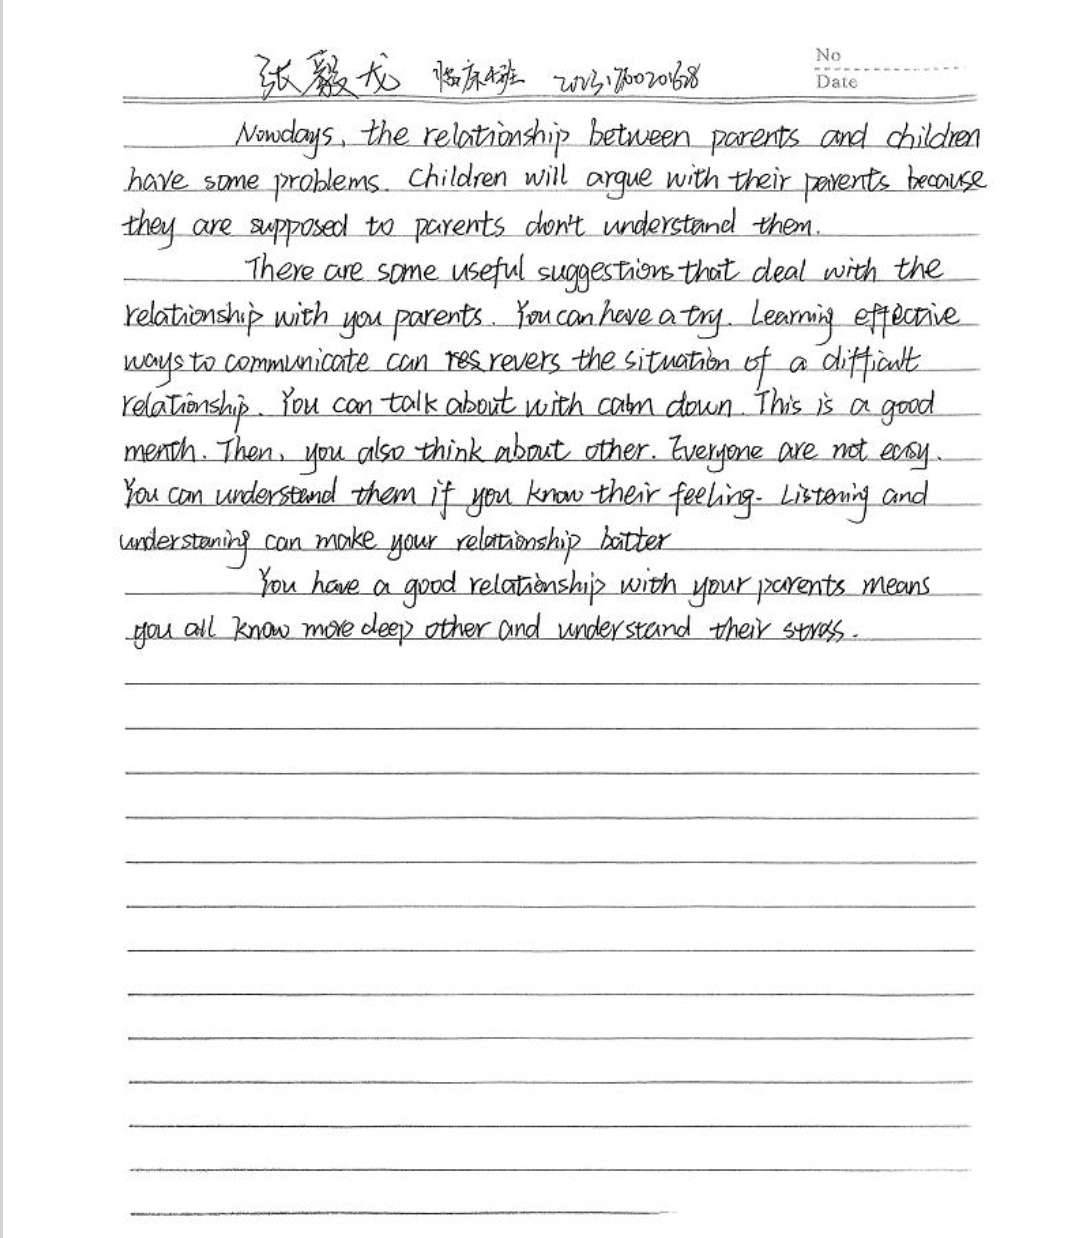 张毅龙 临床班
No
Date
Nowdays, the relationship between parents and children
have some problems. Children will argue with their parents because
they are supposed to parents don't understand them.
There are some useful suggestions that deal with the
relationship with you parents. You can have a try. Learning effective
ways to communicate can revers the situation of a difficult
relationship. You can talk about with calm down. This is a good
menth. Then, you also think about other. Everyone are not easy.
You can understand them if you know their feeling. Listening and
understaning can make your relationship batter
You have a good relationship with your parents means
you all know more deep other and understand their stress.